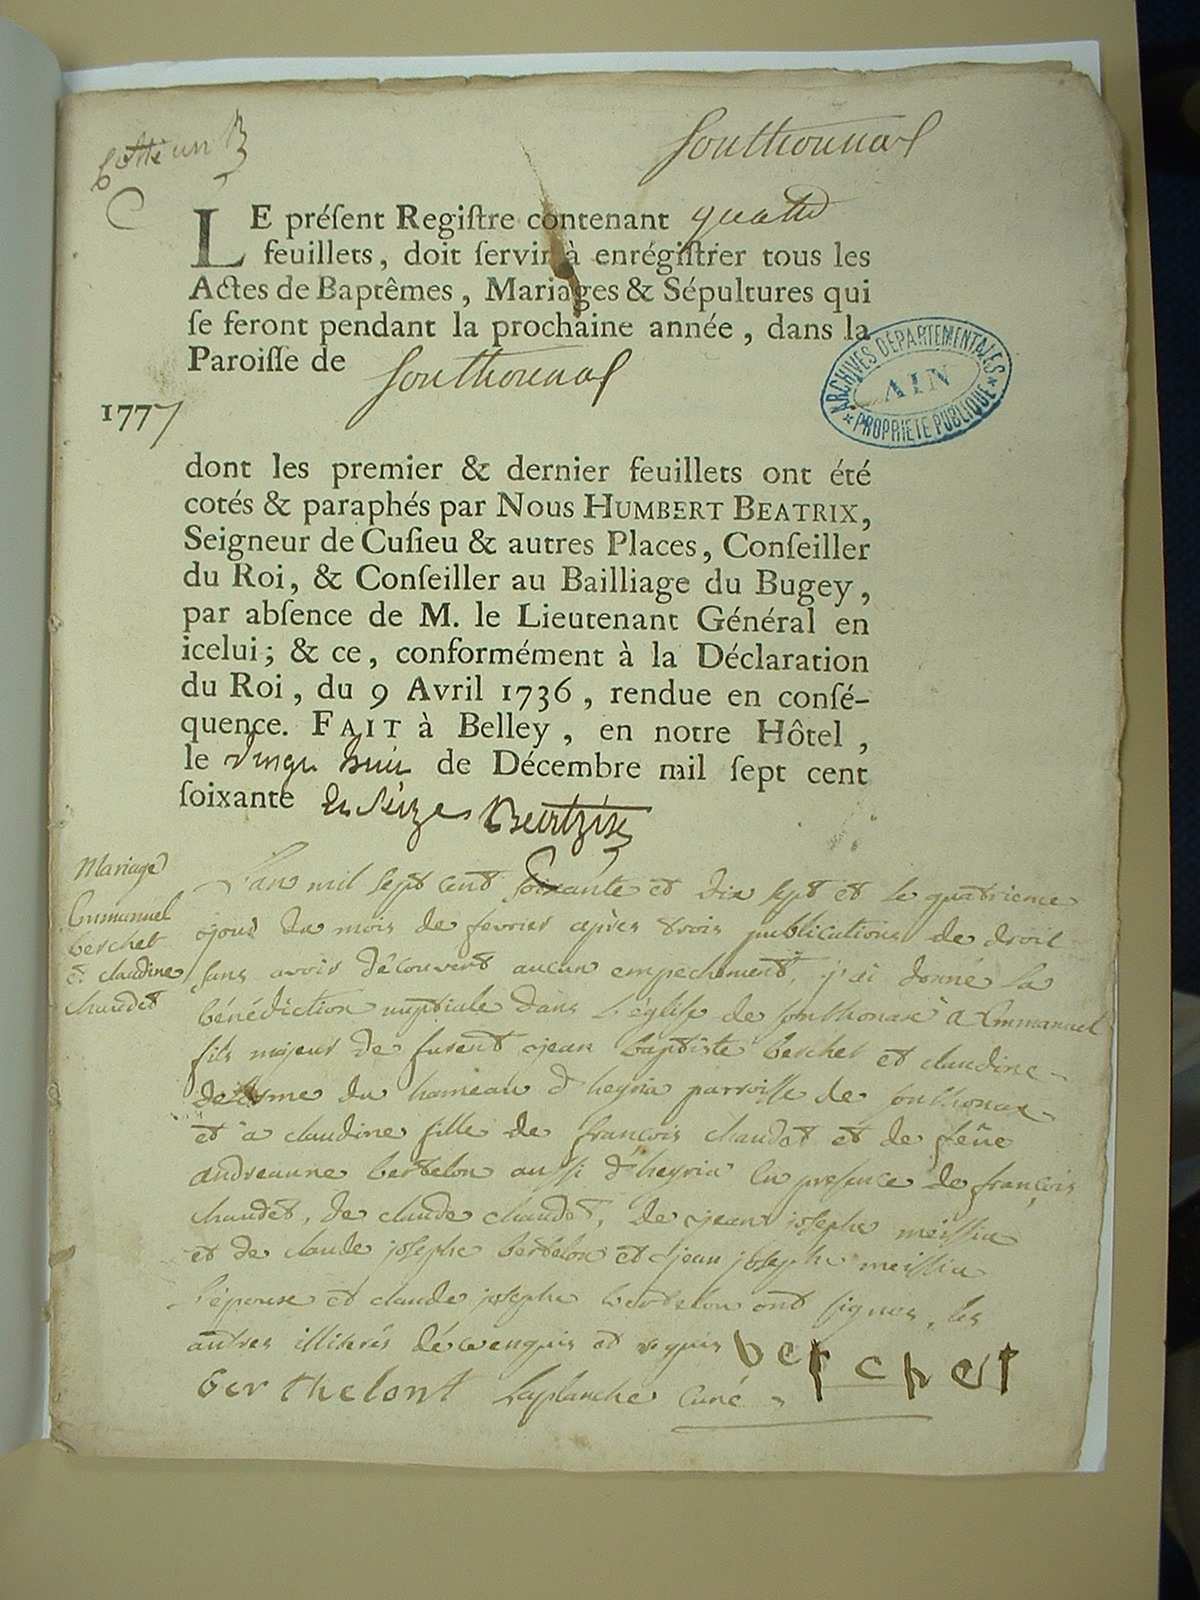 Cotté un B
Sonthonnas
LE préſent Regiſtre contenant quatre
feuillets, doit ſervir à enrégiſtrer tous les
Actes de Baptêmes, Mariages & Sépultures qui
ſe feront pendant la prochaine année, dans la
Paroiſſe de Sonthonnas
ARCHIVES DÉPARTEMENTALES
AIN
PROPRIÉTÉ PUBLIQUE
1777
dont les premier & dernier feuillets ont été
cotés & paraphés par Nous HUMBERT BEATRIX,
Seigneur de Cuſieu & autres Places, Conſeiller
du Roi, & Conſeiller au Bailliage du Bugey,
par abſence de M. le Lieutenant Général en
icelui; & ce, conformément à la Déclaration
du Roi, du 9 Avril 1736, rendue en conſé-
quence. FAIT à Belley, en notre Hôtel,
le vingt huit de Décembre mil ſept cent
ſoixante et seize Beatrix
Mariage
Emmanuel
berchet
et claudine
chaudet
L'an mil sept cent soixante et dix sept et le quatrieme
jour du mois de fevrier après trois publications de droit
sans avoir découvert aucun empechement, j'ai donné la
bénédiction nuptiale dans l'église de sonthonax a Emmanuel
fils majeur de furent jean baptiste berchet et claudine
du hameau d'heyria parroisse de sonthonax
et a claudine fille de françois chaudet et de feüe
andreanne bertelon aussi d'heyria en presence de françois
chaudet, de claude chaudet, de jean josephe meissia
et de claude josephe bertelon et jean josephe meissia
l'épouse et claude josephe bertelon ont signes, les
autres illiterés de ce enquis et requis berchet
berthelont Laplanche curé